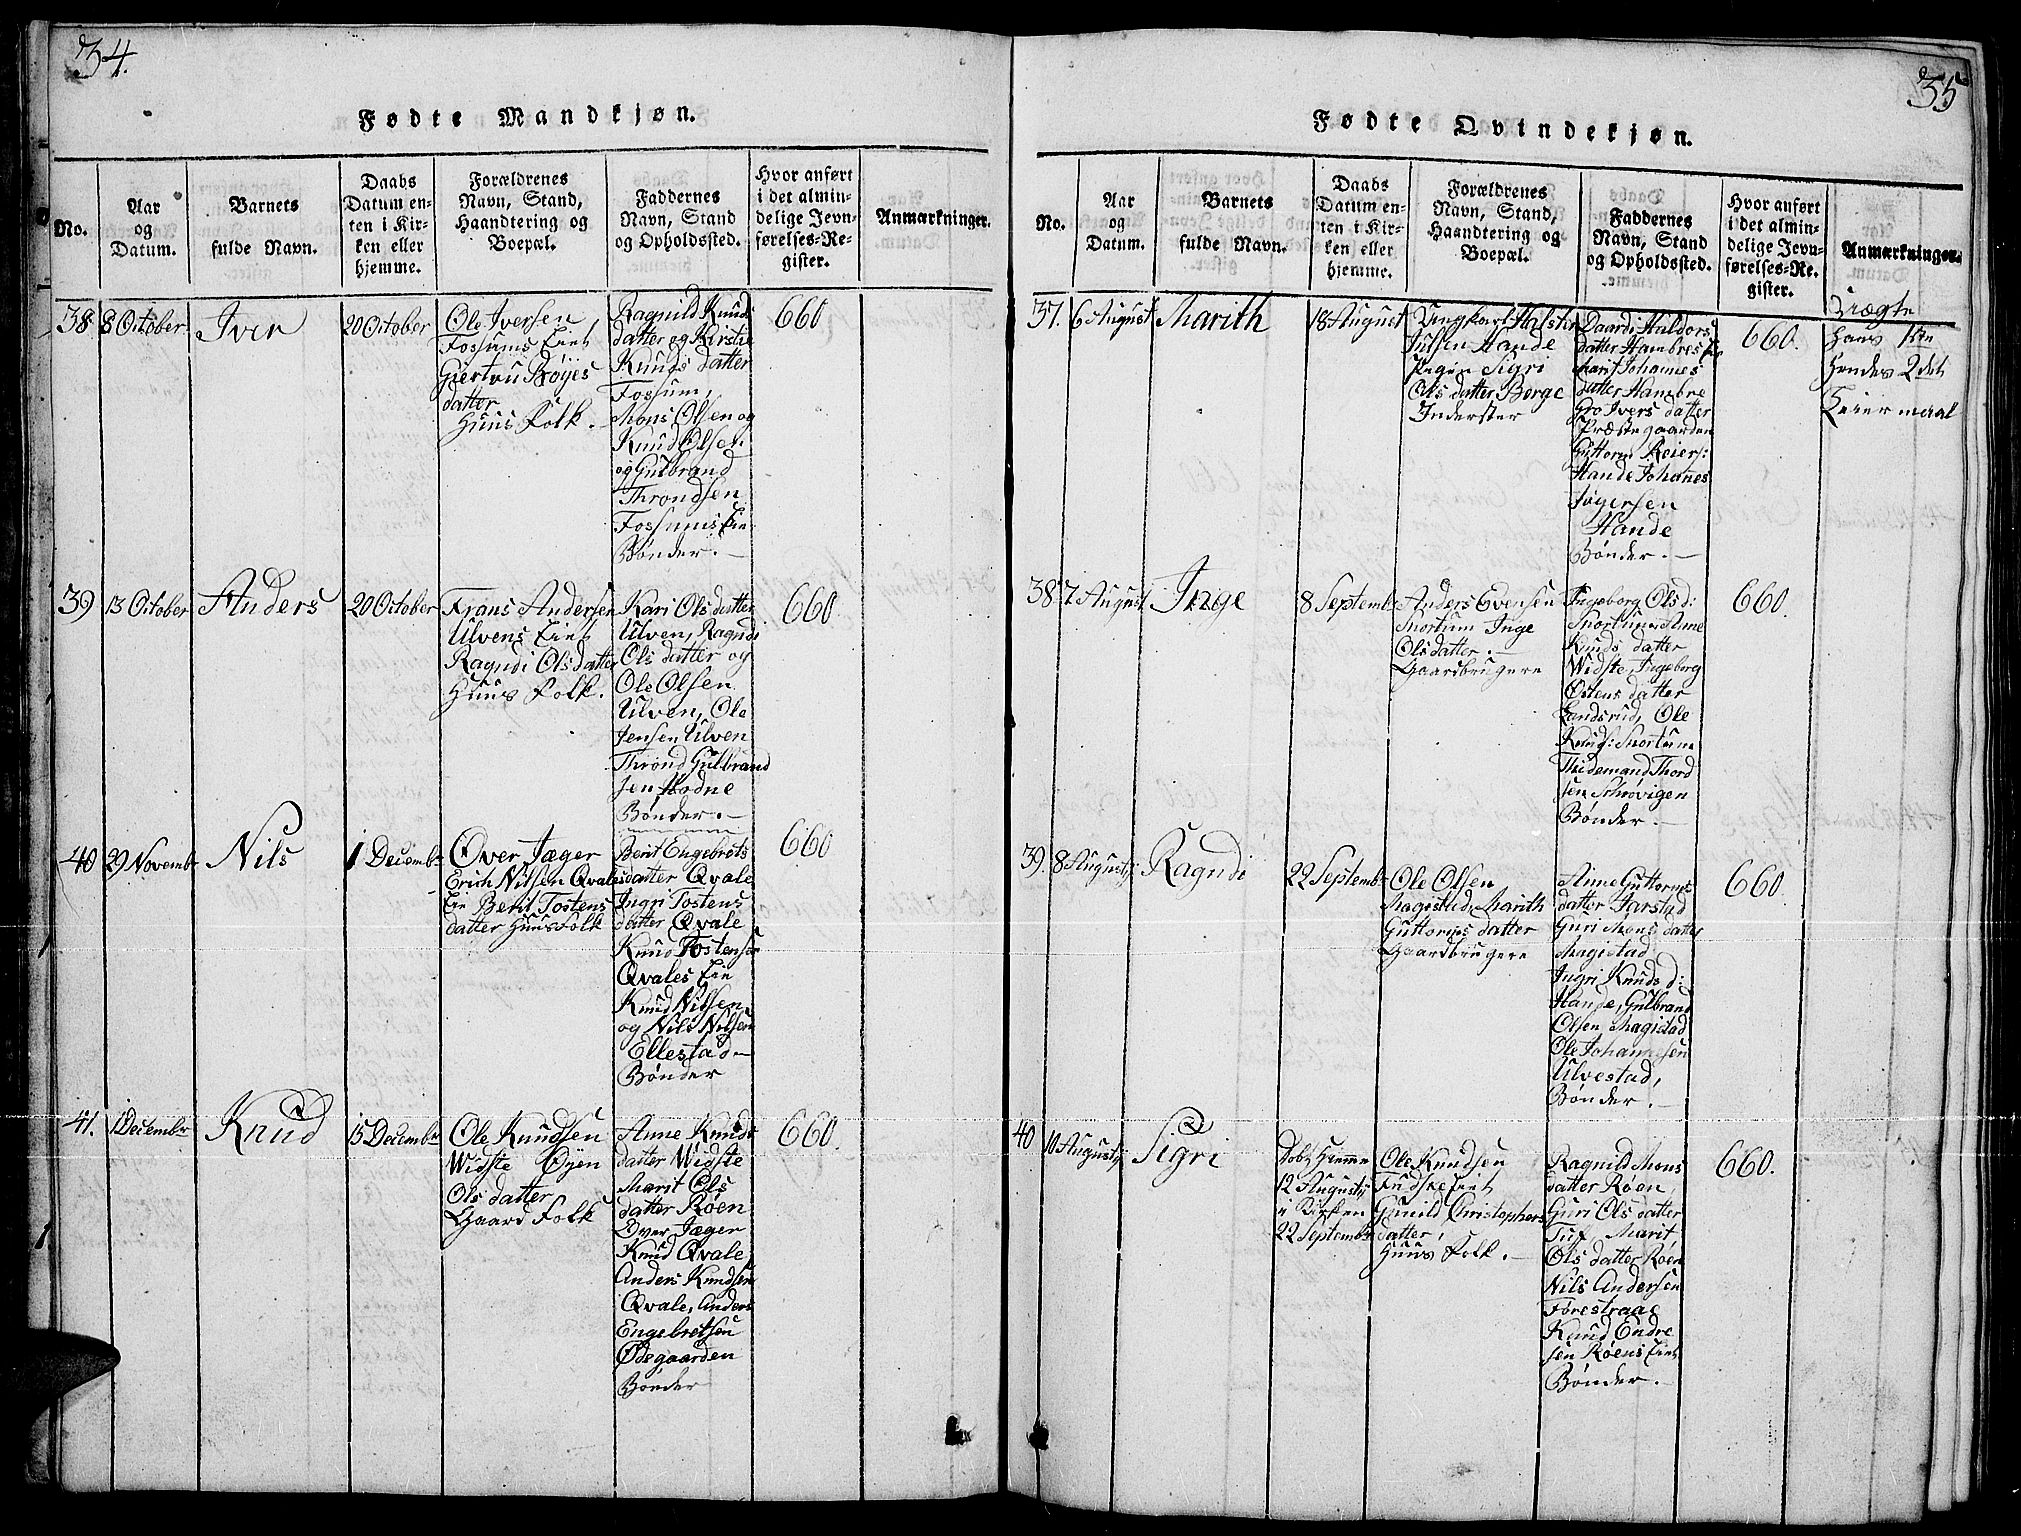 34.
Fødte Mandkjøn.
No.
Aar
og
Datum.
Barnets
fulde Navn.
Daabs
Datum en-
ten i Kir-
ken eller
hjemme.
Forældrenes
Navn, Stand,
Haandtering og
Boepæl.
Faddernes
Navn, Stand
og Opholdssted.
Hvor anført
i det almin-
delige Jevn-
førelses-Re-
gister.
Anmærkninger.
38
8 October
Iver
20 October
Ole Iversen
Fossums Eiet
Giertru Bøyes
datter
Huus Folk.
Ragnild Knuds
datter og Kirstie
Knuds datter
Fossum,
Mons Olsen og
Knud Olsen
og Gulbrand
Throndsen
Fossums Eie
Bønder.
660
39
13 October
Anders
20 October
Frans Andersen
Ulvens Eiet
Ragndi Olsdatter
Huus Folk.
Kari Ols datter
Ulven, Ragndi
Ols datter og
Ole Olsen
Ulven, Ole
Jensen Ulven
Thrond Gulbrand
sen Hodne
Bønder.
660
40
29 Novembr
Nils
1 Decembr
Over Jæger
Erich Nilsen Qvales
Eie Berit Tostens
datter Huus Folk
Berit Engebrets
datter Qvale
Ingri Tostens
datter Qvale
Knud Tostensen
Qvales Eie
Knud Nilsen
og Nils Nilsen
Ellestad
Bønder
660
41.
1 Decembr
Knud
15 Decembr
Ole Knudsen
Widste Øyen
Ols datter
Gaard Folk
Anne Knuds
datter Widste
Marit Ols
datter Røen
Over Jæger
Knud Qvale
Anders Knudsen
Qvale, Anders
Engebretsen
Ødegaarden
Bønder
660.
35
Fødte Qvindekjøn.
No.
Aar
og
Datum.
Barnets
fulde Navn.
Daabs
Datum en-
ten i Kir-
ken eller
hjemme.
Forældrenes
Navn, Stand,
Haandtering og
Boepæl.
Faddernes
Navn, Stand
og Opholdssted.
Hvor anført
i det almin-
delige Jevn-
førelses-Re-
gister.
Anmærkninger.
37.
6 August
Marith
18 August
Ungkarl Halster
Hande
Pigen Sigri
Ols datter Berge
Inderster
Haldors
datter Hambres Eie
Marit Johannes
datter Hambre
Gro Ivers datter
Præstegaarden
Guttorm Reiers:
Hande Johanes
Hande
Bønder.
660.
Uægte
Hans 1ste
Hendes 2det
Leiermaal
38
7 August
Inge
8 Septemb
Anders Evensen
Snortum Inge
Olsdatter.
Gaardbrugere
Ingeborg Ols d:
Snortum Anne
Knuds datter
Widste Ingeborg
Østens datter
Landsrud, Ole
Knuds: Snortum
Thidemand Thord
sen Schrøvigen
Bønder.
660.
39.
8 Augustij
Ragndi
22 Septembr
Ole Olsen
Magistad, Marith
Guttorms datter
Gaardbrugere
Anne Guttorms
datter Jarstad
Guri Mons datter
Magistad
Ingri Knuds d:
Hande, Gulbrand
Olsen Magistad
Ole Johannesen
Ulvestad,
Bønder.
660.
40
10 Augustij
Sigri
Døbt Hiemme
12 Augustij
i Kirken
22 Septembr
Ole Knudsen
Eiet
Gunild Christophers
datter,
Huus Folk.
Ragnild Mons
datter Røen,
Guri Ols datter
Tuf Marit
Ols datter Røen
Nils Andersen
Forestraae
Knud Endre
sen Røens Eiet
Bønder.
660.